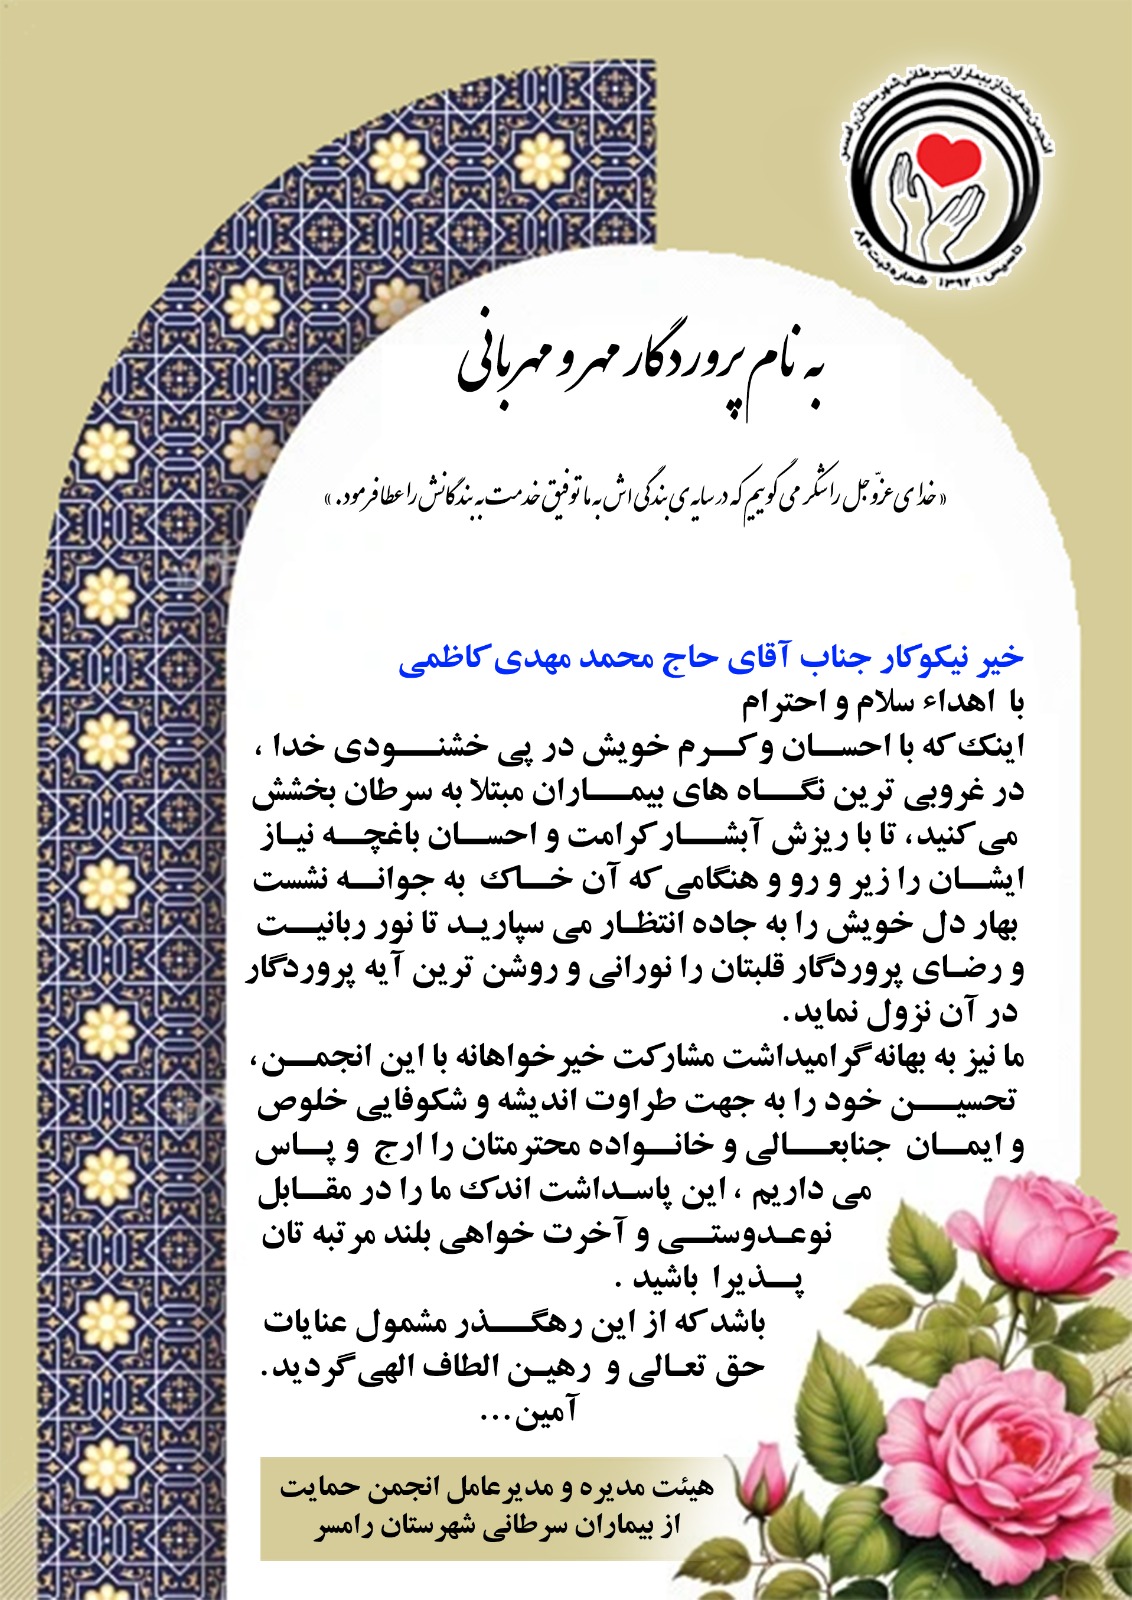 انجمن حمایت از بیماران سرطانی شهرستان رامسر
تاسیس : ۱۳۹۲ شماره ثبت ۸۳
به نام پروردگار مهر و مهربانی
« خدای عزّوجل را شکر می گوییم که در سایه ی بندگی اش به ما توفیق خدمت به بندگانش را عطا فرمود. »
خیر نیکوکار جناب آقای حاج محمد مهدی کاظمی
با اهداء سلام و احترام
اینک که با احسان و کرم خویش در پی خشنودی خدا ،
در غروبی ترین نگاه های بیماران مبتلا به سرطان بخشش
می کنید، تا با ریزش آبشار کرامت و احسان باغچه نیاز
ایشان را زیر و رو و هنگامی که آن خاک به جوانه نشست
بهار دل خویش را به جاده انتظار می سپارید تا نور ربانیت
و رضای پروردگار قلبتان را نورانی و روشن ترین آیه پروردگار
در آن نزول نماید.
ما نیز به بهانه گرامیداشت مشارکت خیرخواهانه با این انجمن،
تحسین خود را به جهت طراوت اندیشه و شکوفایی خلوص
و ایمان جنابعالی و خانواده محترمتان را ارج و پاس
می داریم ، این پاسداشت اندک ما را در مقابل
نوعدوستی و آخرت خواهی بلند مرتبه تان
پذیرا باشید .
باشد که از این رهگذر مشمول عنایات
حق تعالی و رهین الطاف الهی گردید.
آمین...
هیئت مدیره و مدیرعامل انجمن حمایت
از بیماران سرطانی شهرستان رامسر